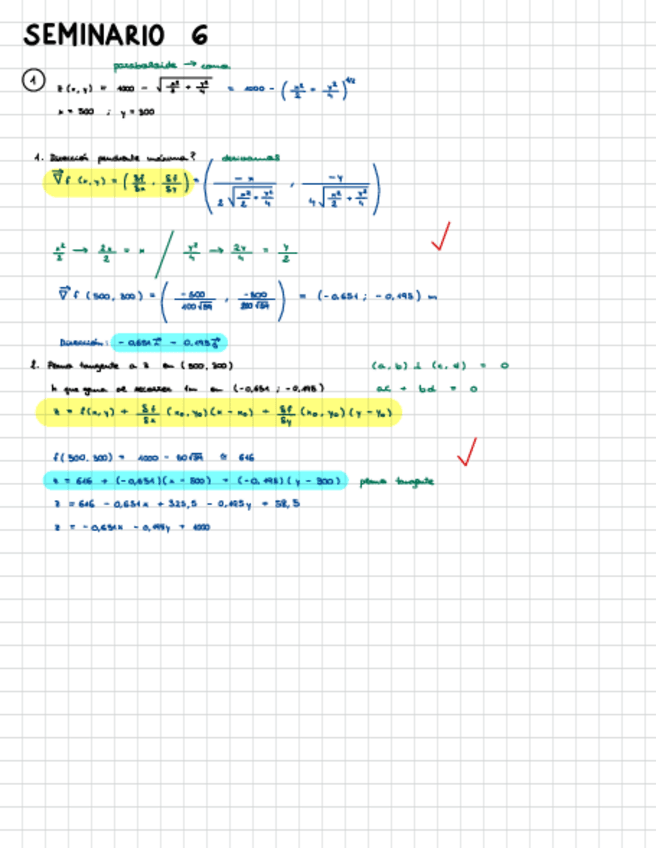 SEMINARIO 6
paraboloide → cono
1 z(x,y) = 1000 - √(x²/2 + y²/4) = 1000 - (x²/2 + y²/4)^1/2
x = 500 ; y = 300
1. Dirección pendiente máxima? derivamos
∇f (x,y) = (δf/δx , δf/δy) = (-x / 2√(x²/2 + y²/4) , -y / 4√(x²/2 + y²/4))
x²/2 → 2x/2 = x / y²/4 → 2y/4 = y/2
∇f (500, 300) = (-500 / 100√59 , -300 / 200√59) = (-0,651 ; -0,195) m
Dirección: -0,651i - 0,195j
2. Plano tangente a z en (500, 300) (a, b) ⊥ (c, d) = 0
h que en (-0,651 ; -0,195) ac + bd = 0
z = f(x,y) + δf/δx (x₀, y₀)(x - x₀) + δf/δy (x₀, y₀)(y - y₀)
f(500, 300) = 1000 - 50√59 ≈ 616
z = 616 + (-0,651)(x - 500) + (-0,195)(y - 300) plano tangente
z = 616 - 0,651x + 325,5 - 0,195y + 58,5
z = -0,651x - 0,195y + 1000